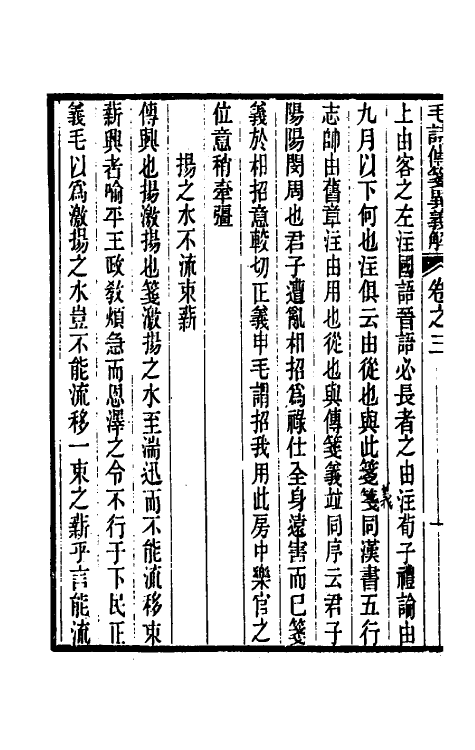 毛詩傳箋異義解 卷之三 一
上由客之左注國語晉語必長者之由注荀子禮論由
九月以下何也注俱云由從也與此箋箋同漢書五行
義
志帥由舊章注由用也從也與傳箋義竝同序云君子
陽陽閔周也君子遭亂相招爲祿仕全身遠害而已箋
義於相招意較切正義申毛謂招我用此房中樂官之
位意稍牽彊
揚之水不流束薪
傳興也揚激揚也箋激揚之水至湍迅而不能流移束
薪興者喻平王政敎煩急而恩澤之令不行于下民正
義毛以爲激揚之水豈不能流移一束之薪乎言能流